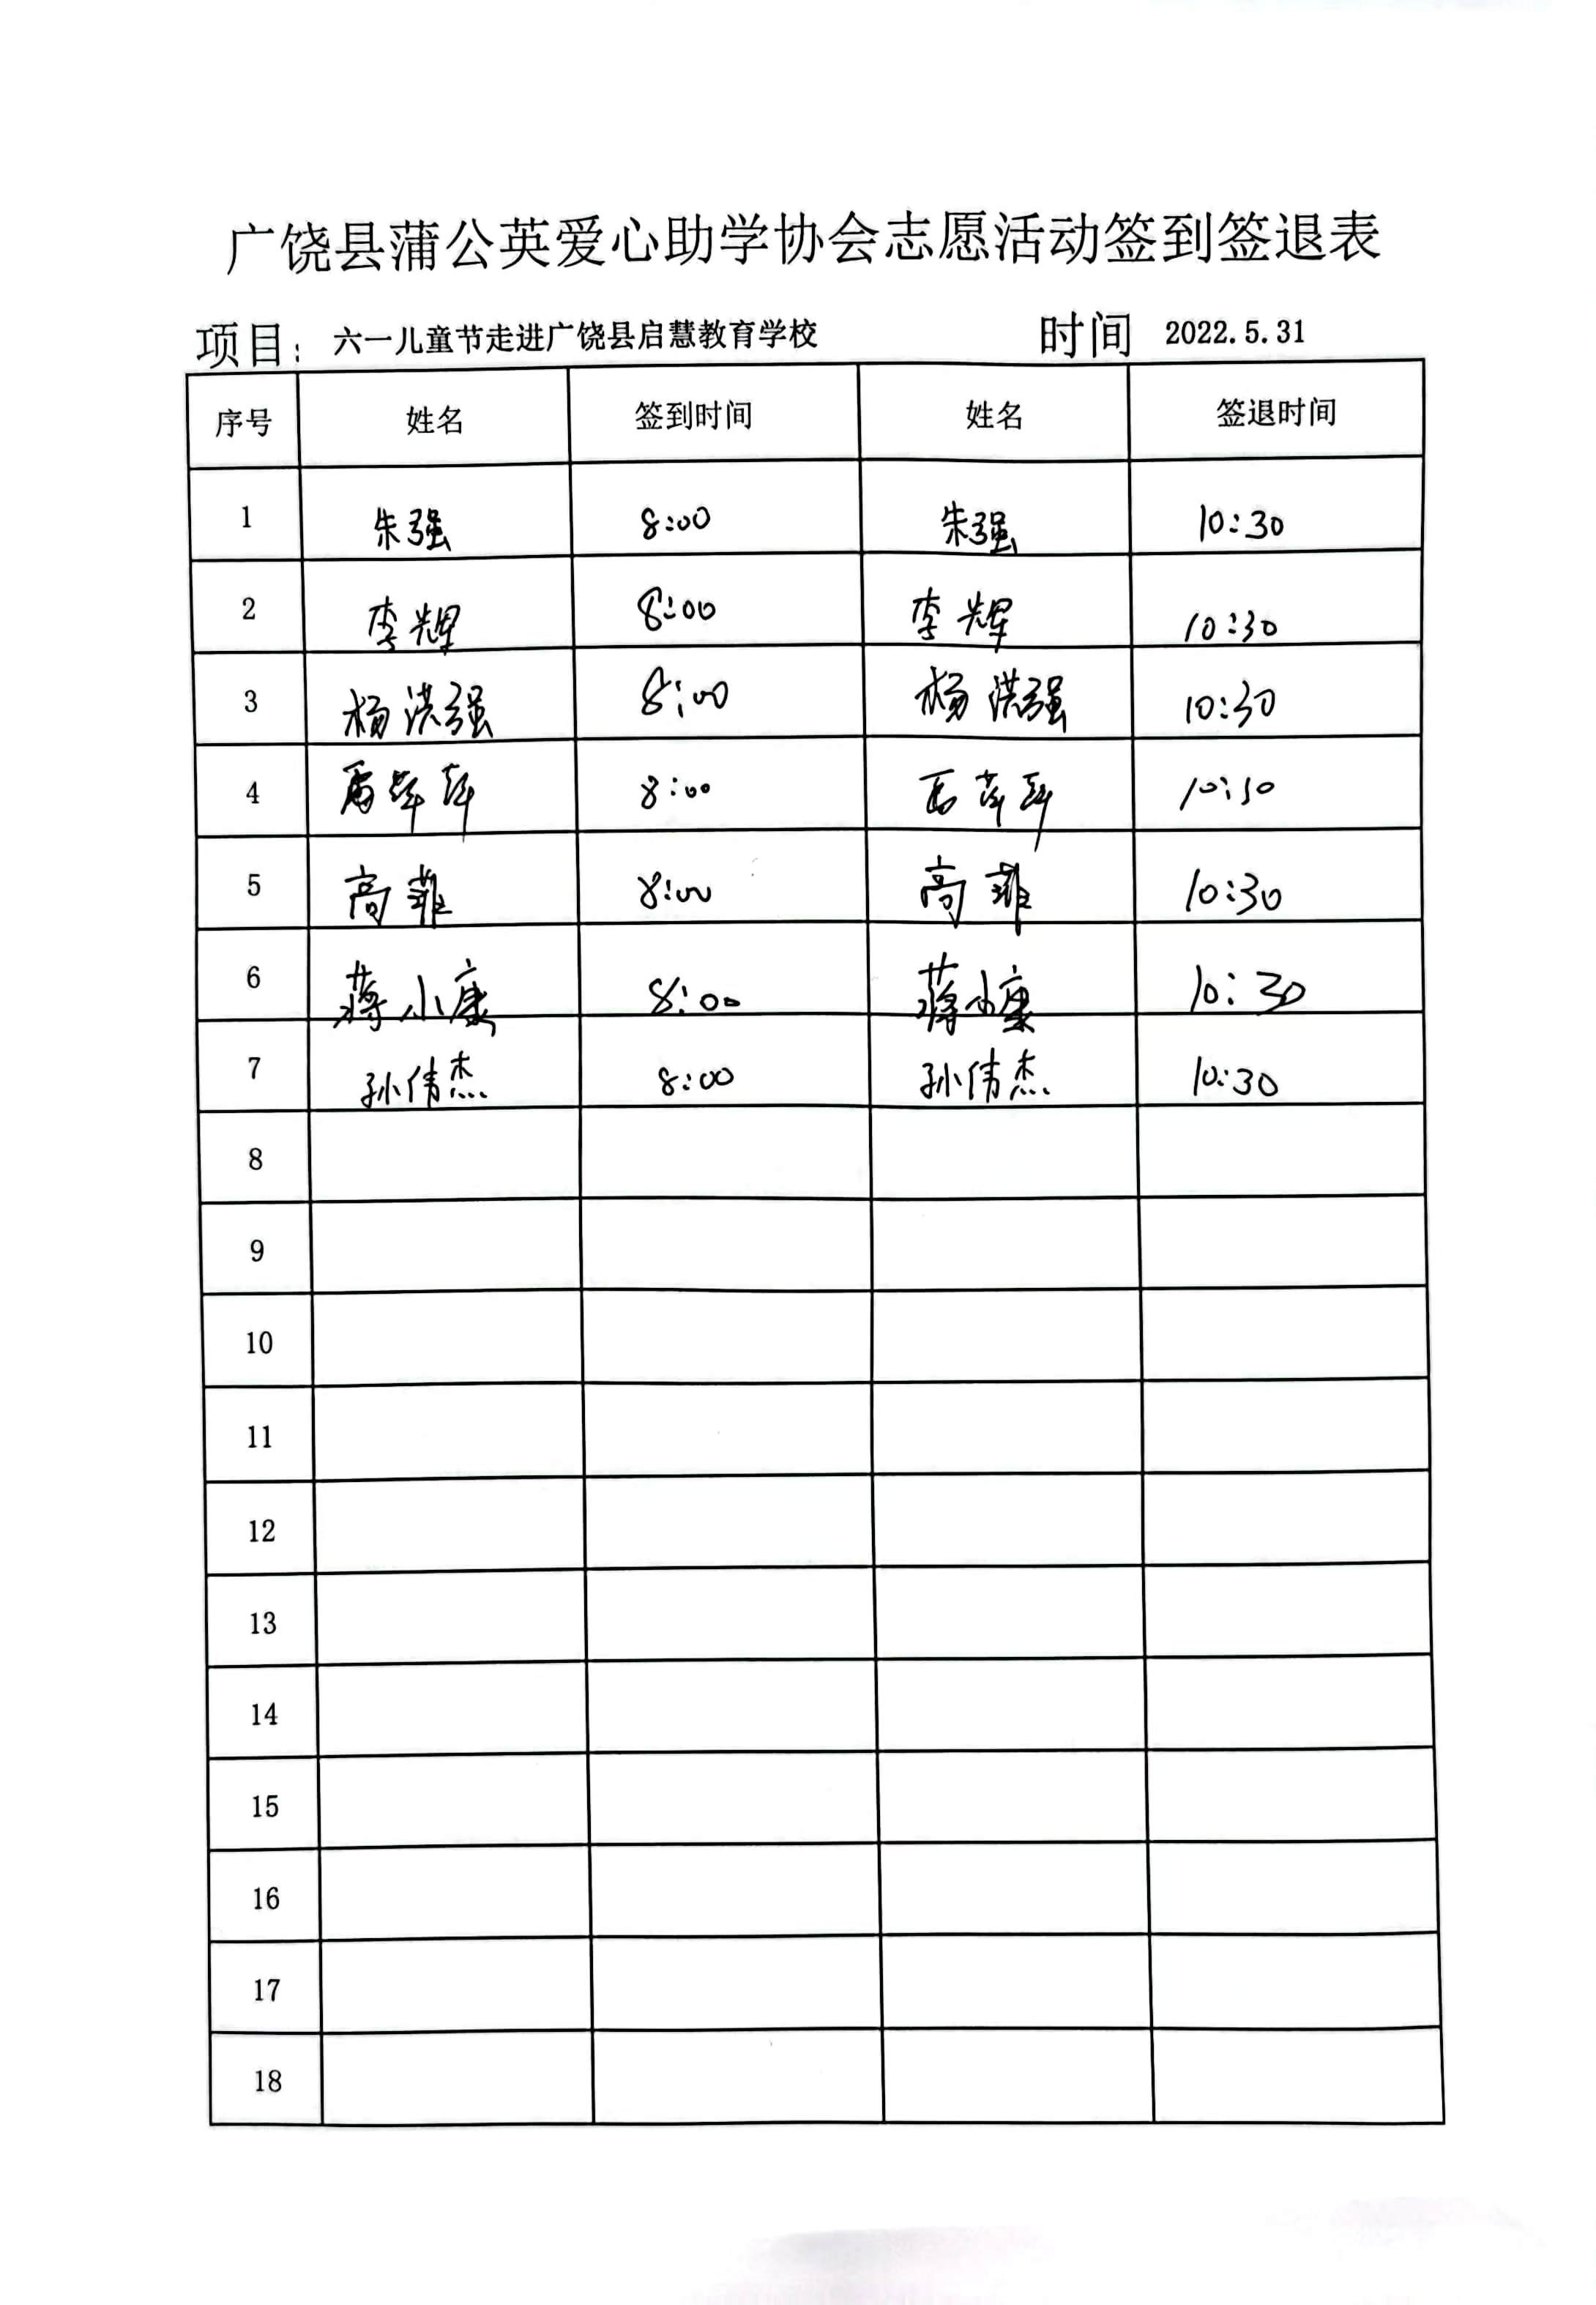 广饶县蒲公英爱心助学协会志愿活动签到签退表
项目: 六一儿童节走进广饶县启慧教育学校 时间 2022.5.31
序号 姓名 签到时间 姓名 签退时间
1 朱强 8:00 朱强 10:30
2 李辉 8:00 李辉 10:30
3 杨洪强 8:00 杨洪强 10:30
4 8:00 10:30
5 高菲 8:00 高菲 10:30
6 蒋小康 8:00 蒋小康 10:30
7 孙伟杰 8:00 孙伟杰 10:30
8
9
10
11
12
13
14
15
16
17
18